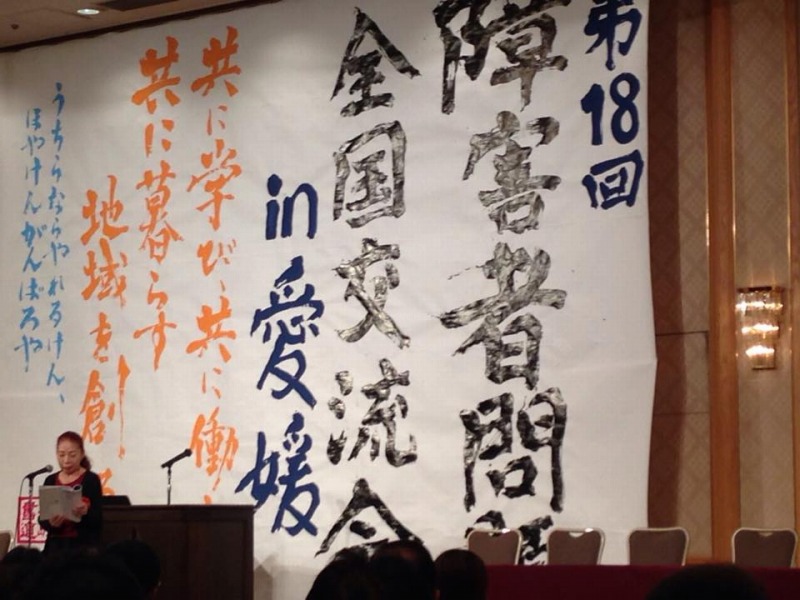 第18回
障害者問題
全国交流会
in 愛媛
共に学び、共に働き
共に暮らす
地域を創る
うちらならやれるけん、
ほやけんがんばろや